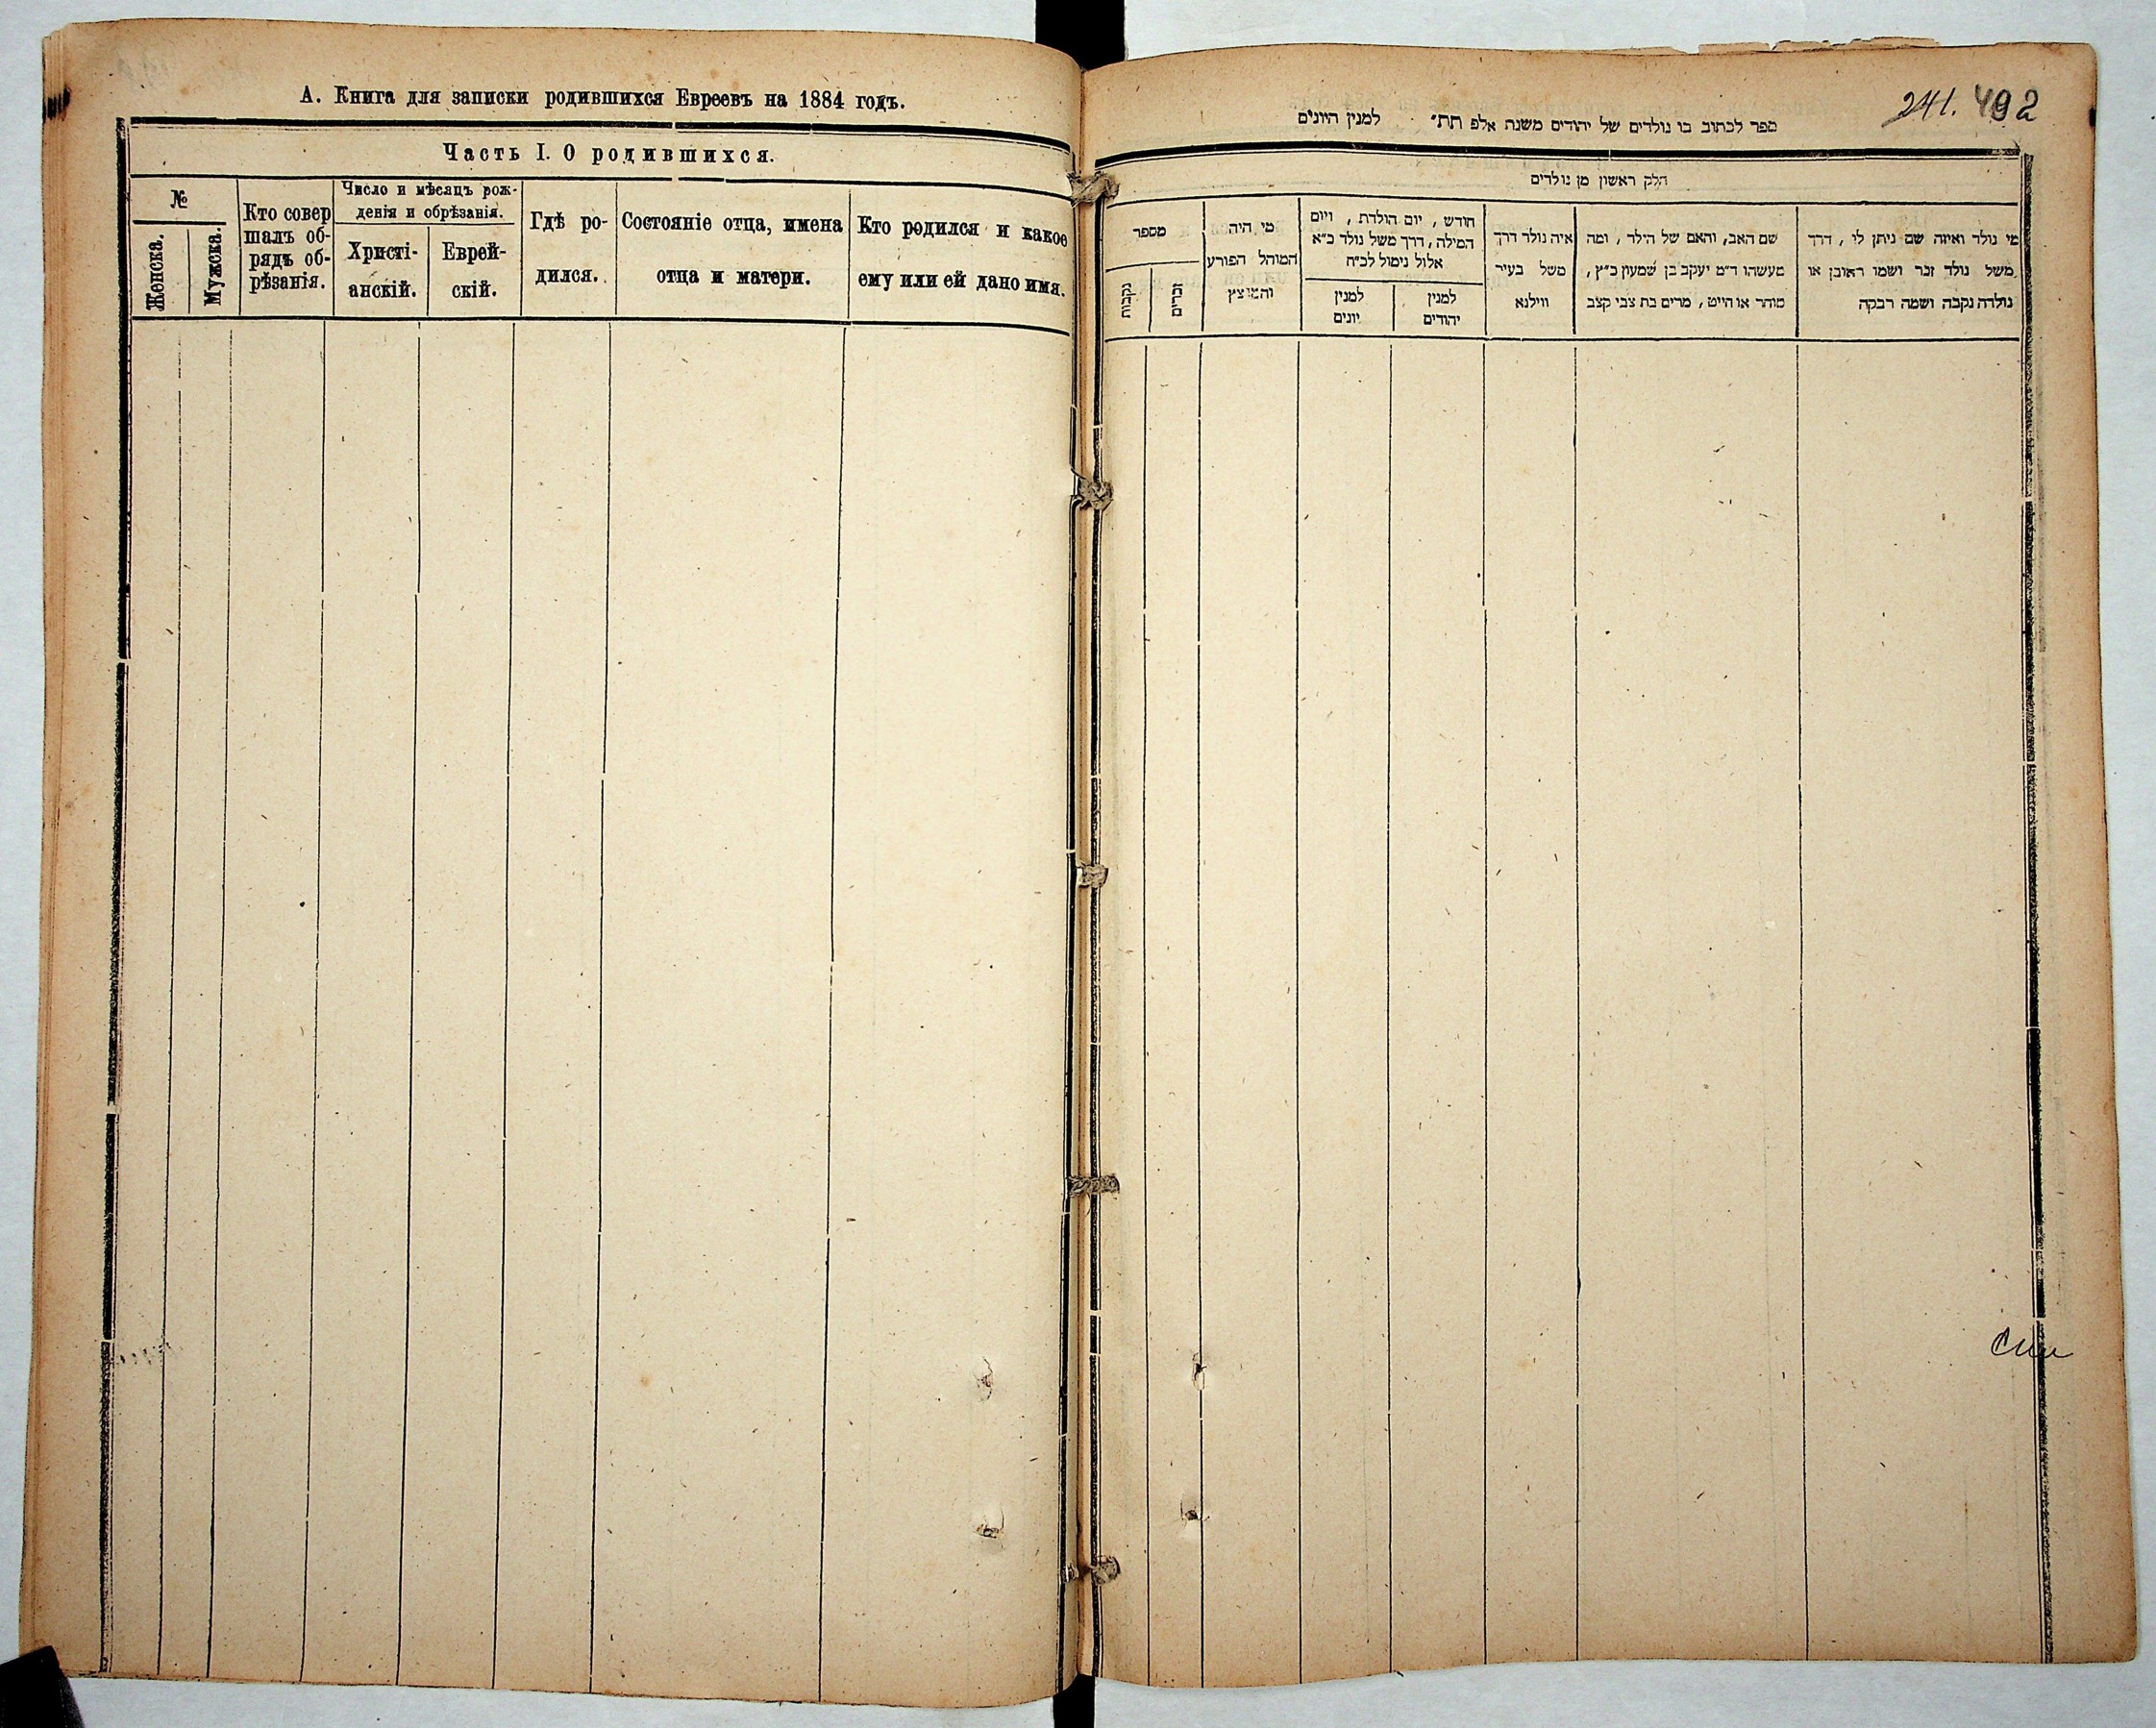 А. Книга для записки родившихся Евреевъ на 1884 годъ.
Часть I. О родившихся.
№
Женска.
Мужска.
Кто совер
шалъ об-
рядъ об-
рѣзанія.
Число и мѣсяцъ рож-
денія и обрѣзанія.
Христі-
анскій.
Еврей-
скій.
Гдѣ ро-
дился.
Состояніе отца, имена
отца и матери.
Кто родился и какое
ему или ей дано имя.
241. 492
ספר לכתוב בו נולדים של יהודים משנה אלפ תת״ למנין היונים
חלק ראשון מן נולדים
מספר
נקבות
זכרים
מי היה
המוהל הפורע
והמוצץ
חודש, יום הולדת, ויום
המילה, דרך משל נולד כ״א
אלול נימול לכ״ח
למנין
יונים
למנין
יהודים
איה נולד דרך
משל בעיר
ווילנא
שם האב, והאם של הילד, ומה
מעשהו ד״מ יעקב בן שמעון כ״ץ,
סוחר או חייט, מרים בת צבי קצב
מי נולד ואיזה שם ניתן לו, דרך
משל נולד זכר ושמו ראובן או
נולדה נקבה ושמה רבקה